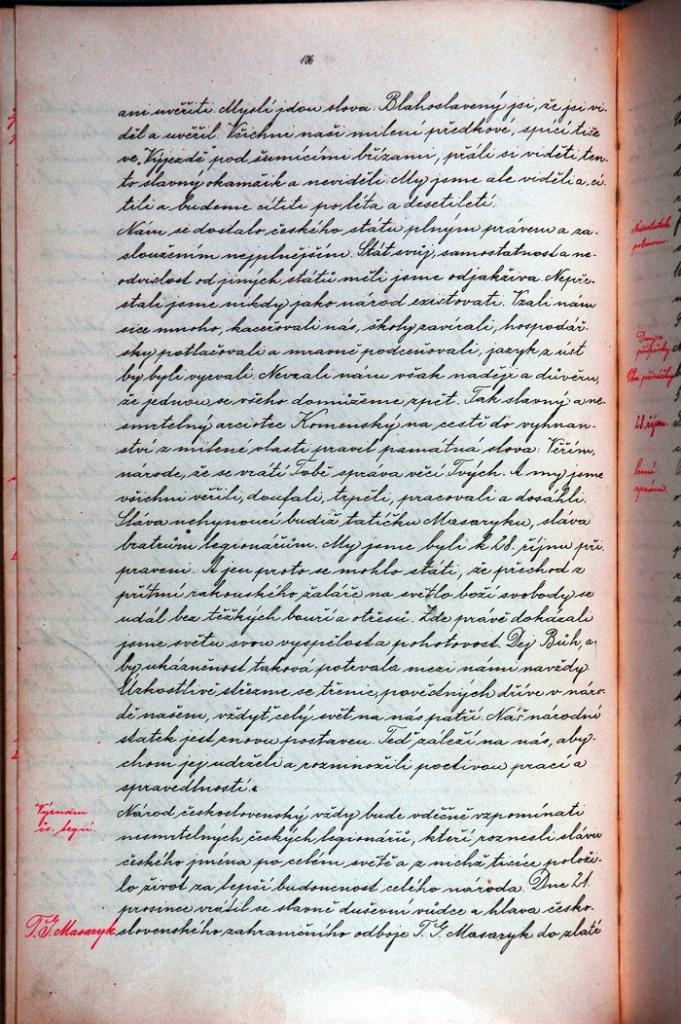 106
ani uvěřiti. Myslí jdou slova: Blahoslavený jsi, že jsi vi-
děl a uvěřil. Všichni naši milení předkové, spící tiše
ve „Výjezdě“ pod šumícími břízami, přáli si viděti ten-
to slavný okamžik a neviděli. My jsme ale viděli a cí-
tili a budeme cítiti po léta a desetiletí.
Nám se dostalo českého státu plným právem a za-
sloužením nejplnějším. Stát svůj, samostatnost a ne-
odvislost od jiných států měli jsme odjakživa. Nepře-
stali jsme nikdy jako národ existovati. Vzali nám
sice mnoho, kaceřovali nás, školy zavírali, hospodář-
sky potlačovali a mravně podceňovali, jazyk z úst
by byli vyrvali. Nevzali nám však naději a důvěru,
že jednou se všeho domůžeme zpět. Tak slavný a ne-
smrtelný arciotec Komenský na cestě do vyhnan-
ství z milené vlasti pravil památná slova: Věřím,
národe, že se vrátí Tobě správa věcí Tvých. A my jsme
všichni věřili, doufali, trpěli, pracovali a dosáhli.
Sláva nehynoucí budiž tatíčku Masaryku, sláva
bratrům legionářům. My jsme byli k 28. říjnu při-
praveni. A jen proto se mohlo státi, že přechod z
přítmí rakouského žaláře na světlo boží svobody se
udál bez těžkých bouří a otřesů. Zde právě dokázali
jsme světu svou vyspělost a pohotovost. Dej Bůh, a-
by ukázněnost taková potrvala mezi námi navždy.
Úzkostlivě střezme se třenic, povědných dříve v náro-
dě našem, vždyť celý svět na nás patří. Náš národní
statek jest znovu postaven. Teď záleží na nás, aby-
chom jej udrželi a rozmnožili poctivou prací a
spravedlností.
Význam
čs. legií.
Národ československý vždy bude vděčně vzpomínati
nesmrtelných českých legionářů, kteří roznesli slávu
českého jména po celém světě a z nichž tisíce polo-
ži-
lo život za lepší budoucnost celého národa. Dne 21.
prosince vrátil se slavně duševní vůdce a hlava česko-
T. G. Masaryk
slovenského zahraničního odboje T. G. Masaryk do zlaté
28. říjen